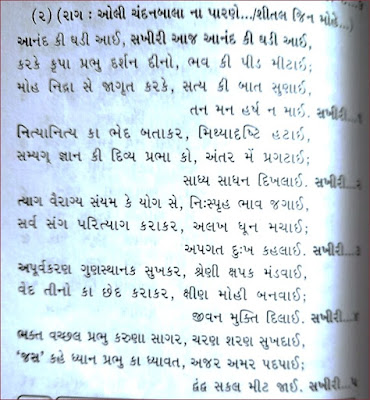 (૨) (રાગ : ઓલી ચંદનબાલા ના પારણે.../શીતલ જિન મોહે...)
આનંદ કી ઘડી આઈ, સખીરી આજ આનંદ કી ઘડી આઈ,
કરકે કૃપા પ્રભુ દર્શન દીનો, ભવ કી પીડ મીટાઈ;
મોહ નિદ્રા સે જાગૃત કરકે, સત્ય કી બાત સુણાઈ,
તન મન હર્ષ ન માઈ. સખીરી...૧
નિત્યાનિત્ય કા ભેદ બતાકર, મિથ્યાદષ્ટિ હટાઈ,
સમ્યગ્ જ્ઞાન કી દિવ્ય પ્રભા કો, અંતર મેં પ્રગટાઈ;
સાધ્ય સાધન દિખલાઈ. સખીરી...૨
ત્યાગ વૈરાગ્ય સંયમ કે યોગ સે, નિઃસ્પૃહ ભાવ જગાઈ,
સર્વ સંગ પરિત્યાગ કરાકર, અલખ ધૂન મચાઈ;
અપગત દુઃખ કહલાઈ. સખીરી...૩
અપૂર્વકરણ ગુણસ્થાનક સુખકર, શ્રેણી ક્ષપક મંડવાઈ,
વેદ તીનો કા છેદ કરાકર, ક્ષીણ મોહી બનવાઈ;
જીવન મુક્તિ દિલાઈ. સખીરી...૪
ભક્ત વચ્છલ પ્રભુ કરુણા સાગર, ચરણ શરણ સુખદાઈ,
‘જસ’ કહે ધ્યાન પ્રભુ કા ધ્યાવત, અજર અમર પદપાઈ;
દ્વંદ્વ સકલ મીટ જાઈ. સખીરી...૫